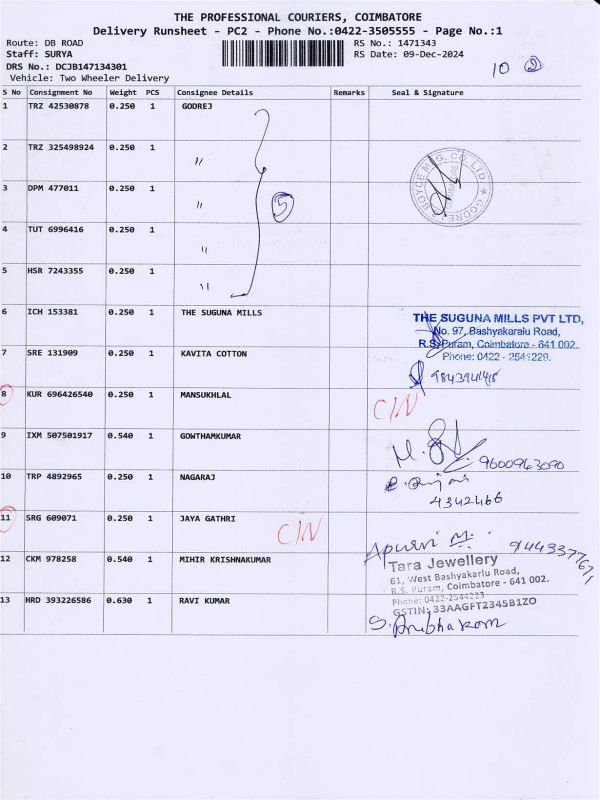 THE PROFESSIONAL COURIERS, COIMBATORE
Delivery Runsheet - PC2 - Phone No.:0422-3505555 - Page No.:1
Route: DB ROAD RS No.: 1471343
Staff: SURYA RS Date: 09-Dec-2024
DRS No.: DCJB147134301
Vehicle: Two Wheeler Delivery
10 2
S No Consignment No Weight PCS Consignee Details Remarks Seal & Signature
1 TRZ 42530878 0.250 1 GODREJ
2 TRZ 325498924 0.250 1 "
3 DPM 477011 0.250 1 "
5
GODREJ & BOYCE MFG. CO. LTD.
4 TUT 6996416 0.250 1 "
5 HSR 7243355 0.250 1 "
6 ICH 153381 0.250 1 THE SUGUNA MILLS
THE SUGUNA MILLS PVT LTD,
No. 97, Bashyakaralu Road,
R.S. Puram, Coimbatore - 641 002.
Phone: 0422 - 2541229.
7 SRE 131909 0.250 1 KAVITA COTTON
8 KUR 696426540 0.250 1 MANSUKHLAL C/N
9 IXM 507501917 0.540 1 GOWTHAMKUMAR
9600963090
10 TRP 4892965 0.250 1 NAGARAJ
4342466
11 SRG 609071 0.250 1 JAYA GATHRI C/N
Apurvi M.
12 CKM 978258 0.540 1 MIHIR KRISHNAKUMAR
Tara Jewellery
61, West Bashyakarlu Road,
R.S. Puram, Coimbatore - 641 002.
Phone: 0422-2544223
GSTIN: 33AAGFT2345B1ZO
13 HRD 393226586 0.630 1 RAVI KUMAR
S. Prabhakaran